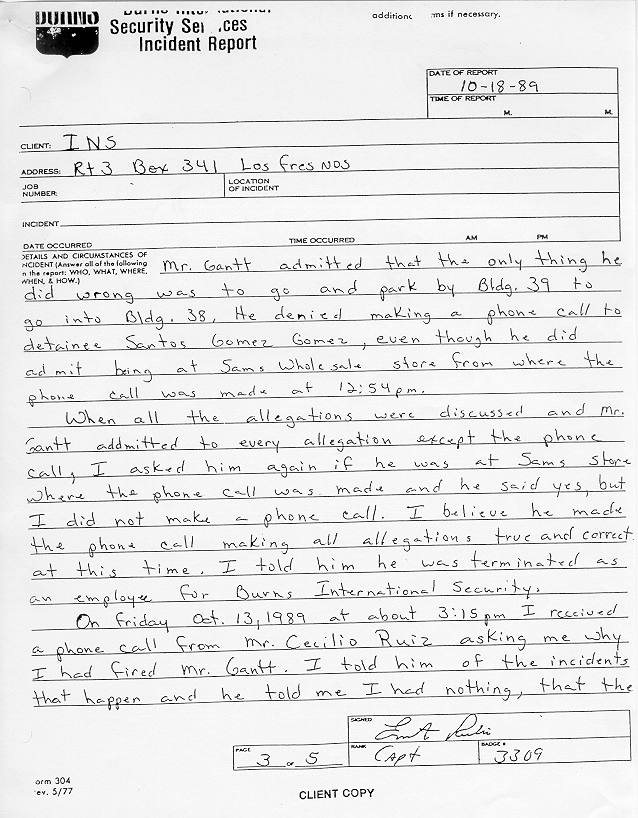 BURNS
Burns International
Security Services
Incident Report
if necessary.
DATE OF REPORT
10-18-89
TIME OF REPORT
M. M.
CLIENT: INS
ADDRESS: Rt 3 Box 341 Los Fresnos
JOB NUMBER:
LOCATION OF INCIDENT
INCIDENT
DATE OCCURRED TIME OCCURRED AM PM
DETAILS AND CIRCUMSTANCES OF
INCIDENT (Answer all of the following
in the report: WHO, WHAT, WHERE,
WHEN, & HOW.)
Mr. Gantt admitted that the only thing he
did wrong was to go and park by Bldg. 39 to
go into Bldg. 38. He denied making a phone call to
detainee Santos Gomez Gomez, even though he did
admit being at Sams Whole sale store from where the
phone call was made at 12:54pm.
When all the allegations were discussed and Mr.
Gantt addmitted to every allegation except the phone
call, I asked him again if he was at Sams store
where the phone call was made and he said yes, but
I did not make a phone call. I believe he made
the phone call making all allegations true and correct
at this time. I told him he was terminated as
an employee for Burns International Security.
On Friday Oct. 13, 1989 at about 3:15pm I received
a phone call from Mr. Cecilio Ruiz asking me why
I had fired Mr. Gantt. I told him of the incidents
that happen and he told me I had nothing, that the
SIGNED
PAGE 3 of 5
RANK Capt
BADGE # 3309
orm 304
ev. 5/77
CLIENT COPY